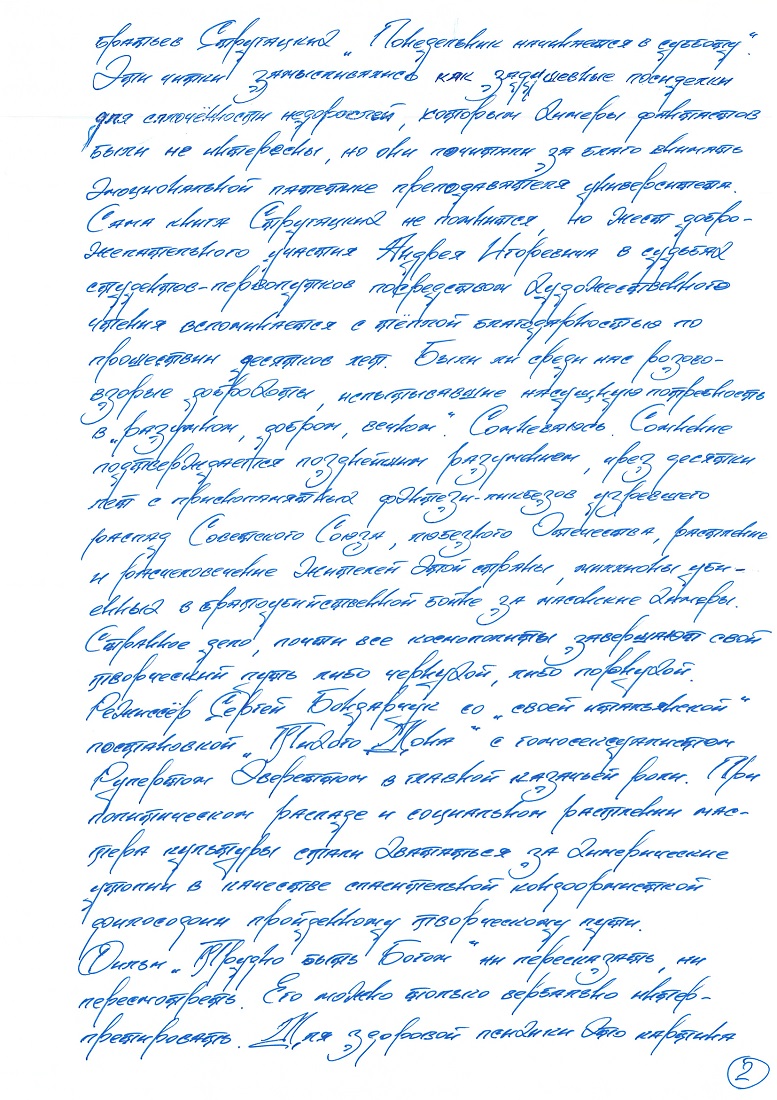 братьев Стругацких „Понедельник начинается в субботу".
Эти читки замысливались как задушевные посиделки
для сплочённости недорослей, которым химеры фантастов
были не интересны, но они почитали за благо внимать
эмоциональной патетике преподавателя университета.
Сама книга Стругацких не помнится, но жест добро-
желательного участия Андрея Игоревича в судьбах
студентов-первопутков посредством художественного
чтения вспоминается с тёплой благодарностью по
прошествии десятков лет. Были ли среди нас розово-
взорые доброхоты, испытывавшие насущную потребность
в „разумном, добром, вечном". Сомневаюсь. Сомнение
подтверждается позднейшим разумением, чрез десятки
лет с прископамятных фэнтези-ликбезов узревшего
распад Советского Союза, любезного Отечества, растление
и расчеловечение жителей этой страны, миллионы уби-
енных в братоубийственной бойне за масонские химеры.
Странное дело, почти все космополиты завершают свой
творческий путь либо чернухой, либо порнухой.
Режиссёр Сергей Бондарчук со „своей итальянской"
постановкой „Тихого Дона" с гомосексуалистом
Рупертом Эвереттом в главной казачьей роли. При
политическом распаде и социальном растлении мас-
тера культуры стали хвататься за химерические
утопии в качестве спасительной кондоористкой
философии пройденному творческому пути.
Фильм „Трудно быть Богом" ни пересказать, ни
пересмотреть. Его можно только вербально интер-
претировать. Для здоровой психики это картина
2